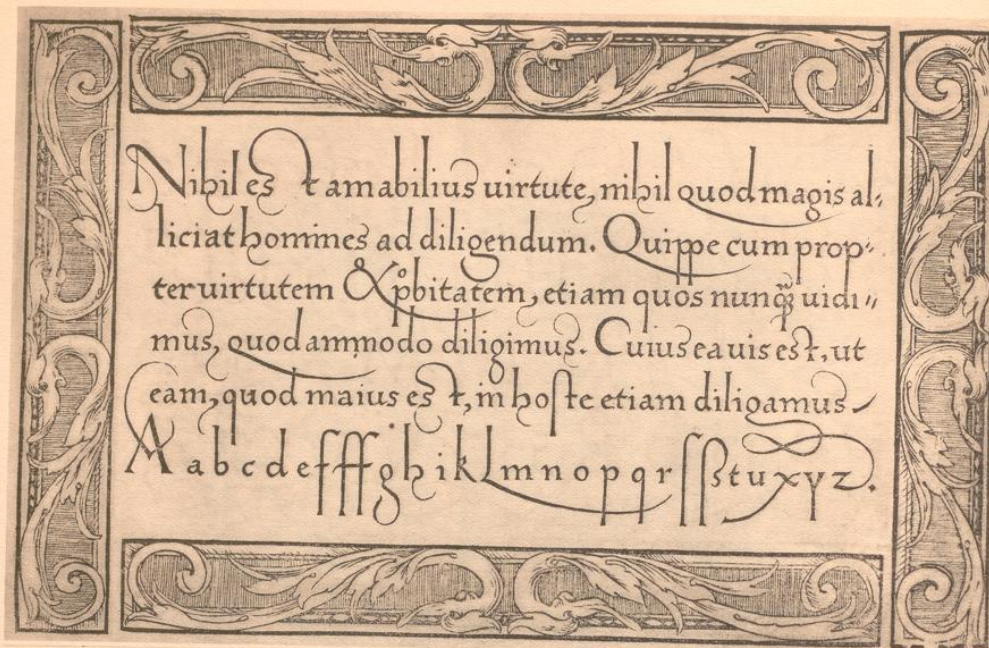 Nihil est amabilius uirtute, nihil quod magis al-
liciat homines ad diligendum. Quippe cum prop-
ter uirtutem & ꝓbitatem, etiam quos nunq̃ uidi-
mus, quodammodo diligimus. Cuius ea uis est, ut
eam, quod maius est, in hoſte etiam diligamus
A a b c d e f ff g h i k l m n o p q r ſ ſſ s t u x y z.